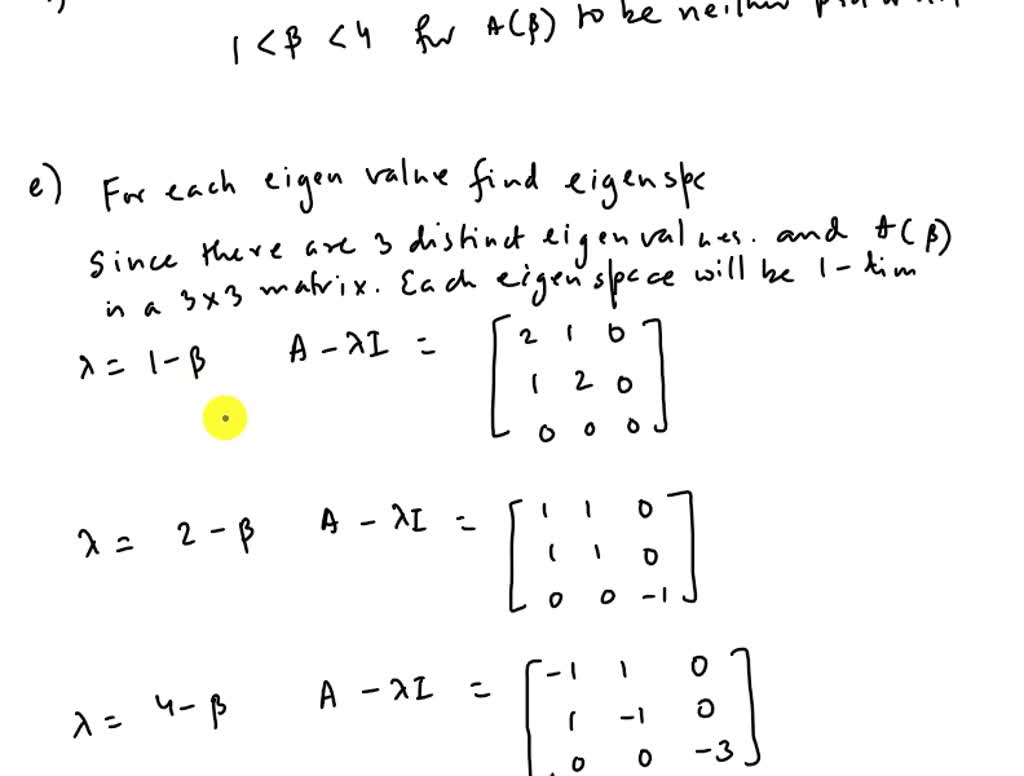 1 < β < 4 for A(β) to be neither
e) For each eigen value find eigenspc
Since there are 3 distinct eigenvalues. and A(β)
is a 3×3 matrix. Each eigenspace will be 1-dim
λ = 1-β A - λI = [2 1 0
1 2 0
0 0 0]
λ = 2-β A - λI = [1 1 0
1 1 0
0 0 -1]
λ = 4-β A - λI = [-1 1 0
1 -1 0
0 0 -3]